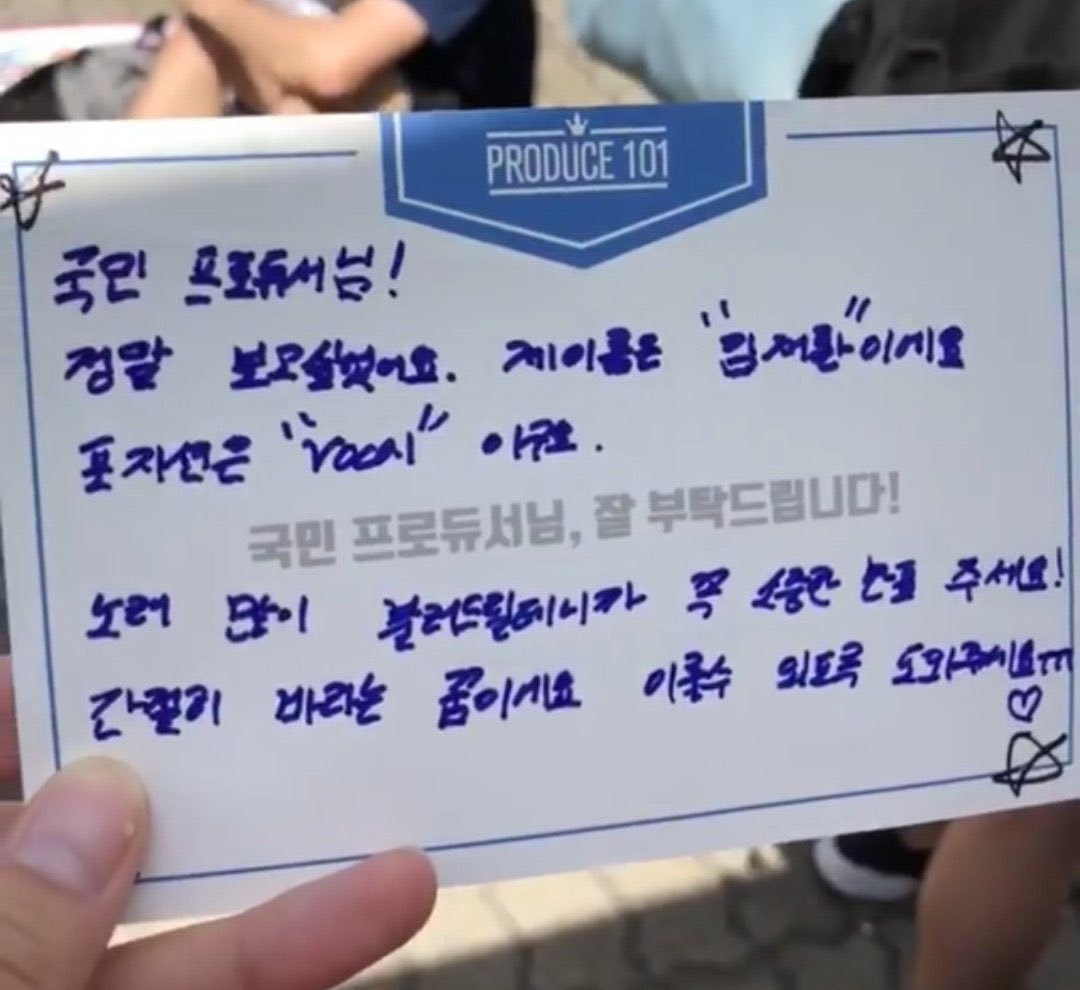 PRODUCE 101
국민 프로듀서님!
정말 보고싶었어요. 제이름은 "김재환"이에요
포지션은 "vocal" 이구요.
국민 프로듀서님, 잘 부탁드립니다!
노래 많이 불러드릴테니까 꼭 소중한 한표 주세요!
간절히 바라는 꿈이에요 이룰수 있도록 도와주세요ㅠㅠ
♡